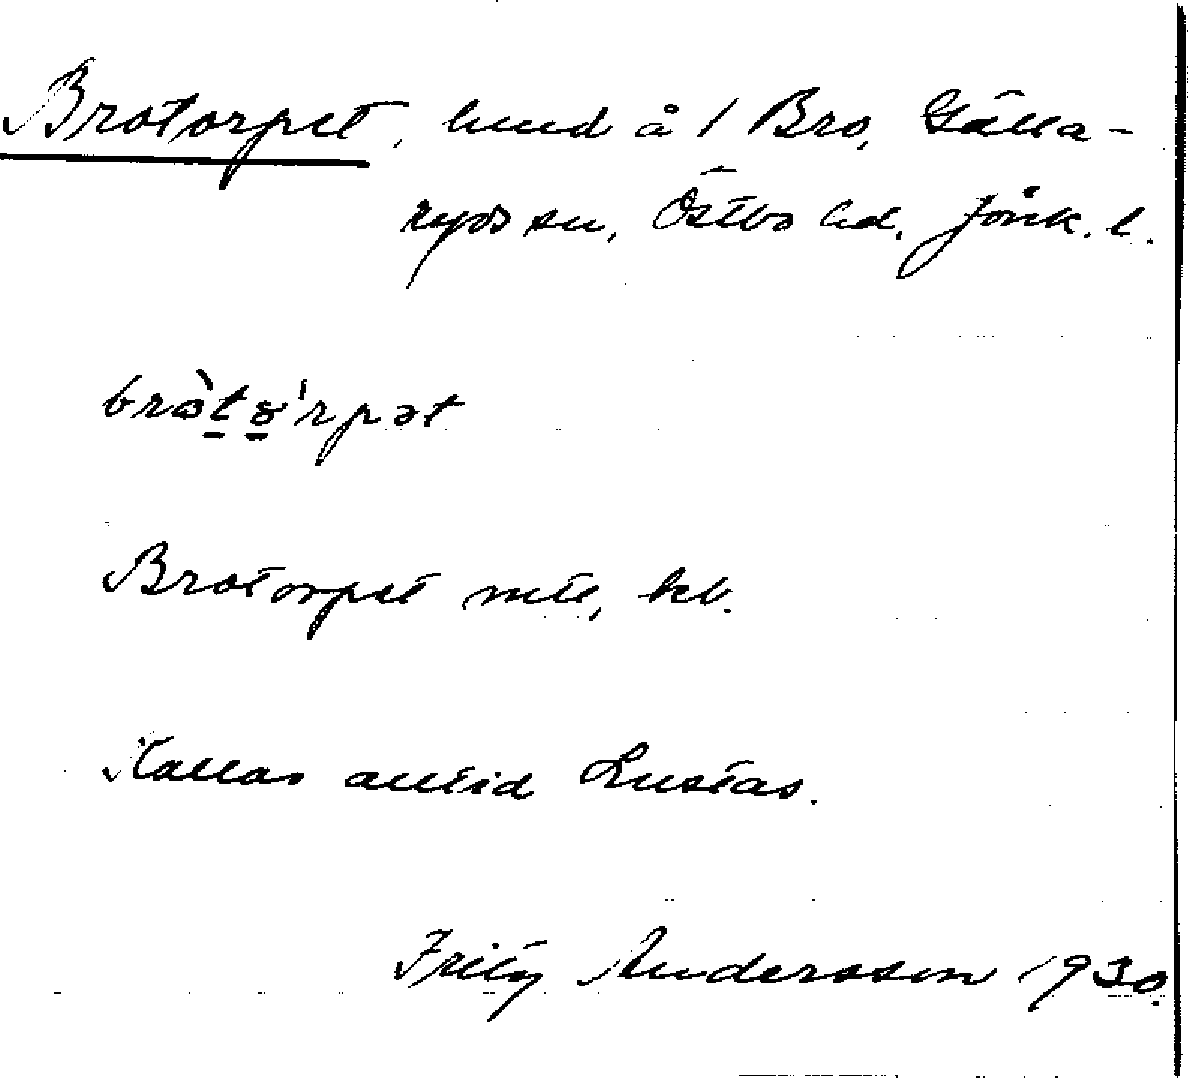 Brotorpet, lund å 1 Bro, Gälla-
ryds sn, Östbo hd. Jönk. l.
bròtɔ'rpət
Brotorpet mtl, kb.
Kallas alltid Lustas.
Fritz Andersson 1930.